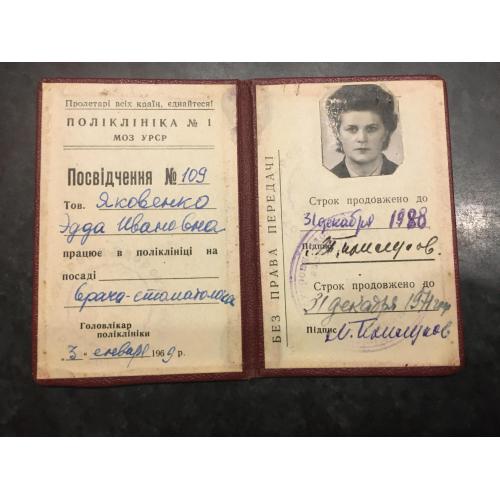 Пролетарі всіх країн, єднайтеся!
ПОЛІКЛІНІКА № 1
МОЗ УРСР
Посвідчення № 109
Тов. Яковенко
Эдда Ивановна
працює в поліклініці на
посаді
Врача-стоматолога
Головлікар
поліклініки
3 января 1969 р.
БЕЗ ПРАВА ПЕРЕДАЧІ
Строк продовжено до
31 декабря 1980
Підпис
Строк продовжено до
31 декабря 1971 год
Підпис